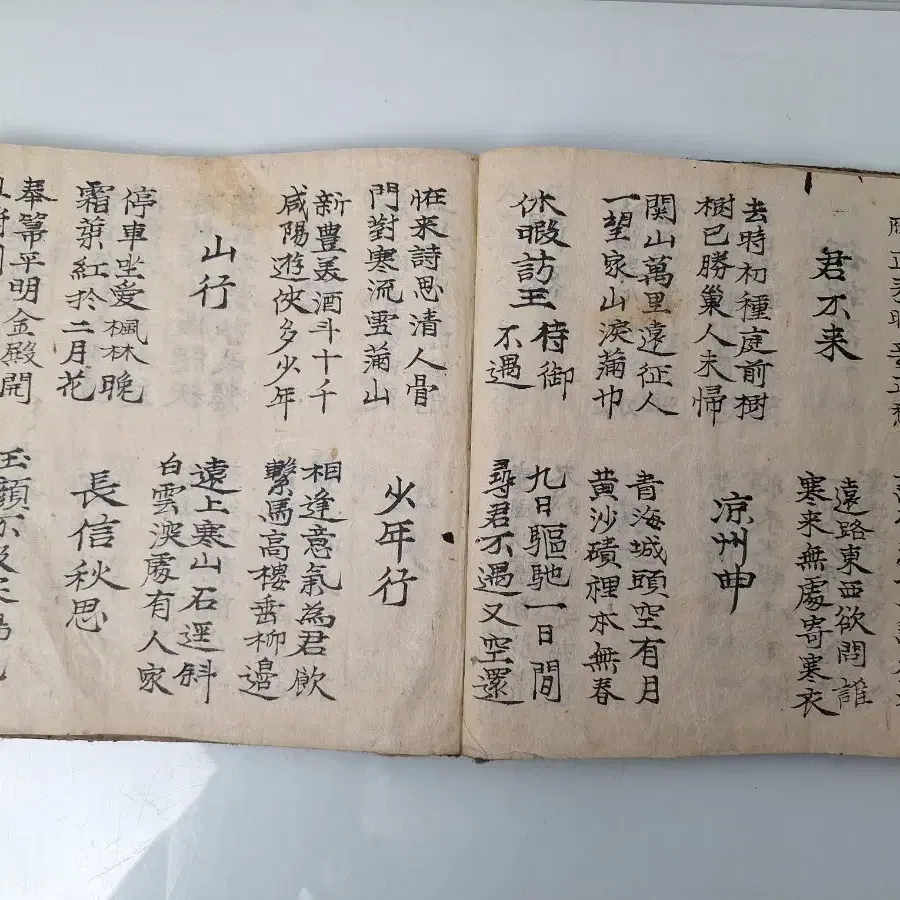 君不来
遠路東西欲問誰
寒来無處寄寒衣
去時初種庭前樹
樹已勝巢人未帰
凉州申
関山萬里遠征人
一望家山淚滿巾
青海城頭空有月
黄沙磧裡本無春
休暇訪王待御
不遇
九日驅馳一日間
尋君不遇又空還
怪来詩思清人骨
門對寒流雪滿山
少年行
新豊美酒斗十千
咸陽遊侠多少年
相逢意氣為君飲
繋馬高樓垂柳邉
山行
遠上寒山石逕斜
白雲深處有人家
停車坐愛楓林晚
霜葉紅於二月花
長信秋思
奉箒平明金殿開
玉顔不及寒鴉色